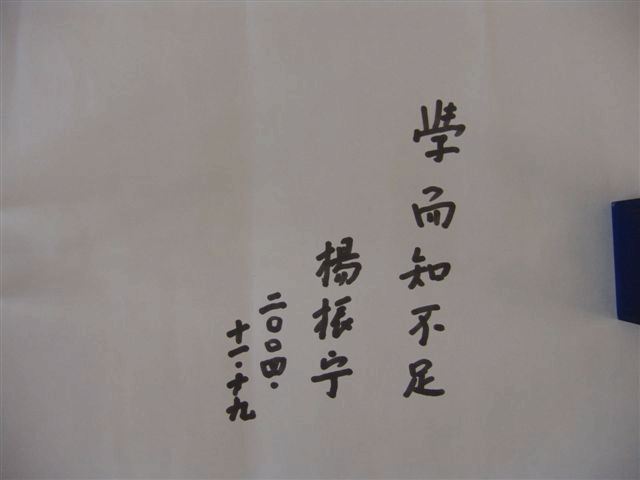 學而知不足
楊振宁
二〇〇四.
十一.十九